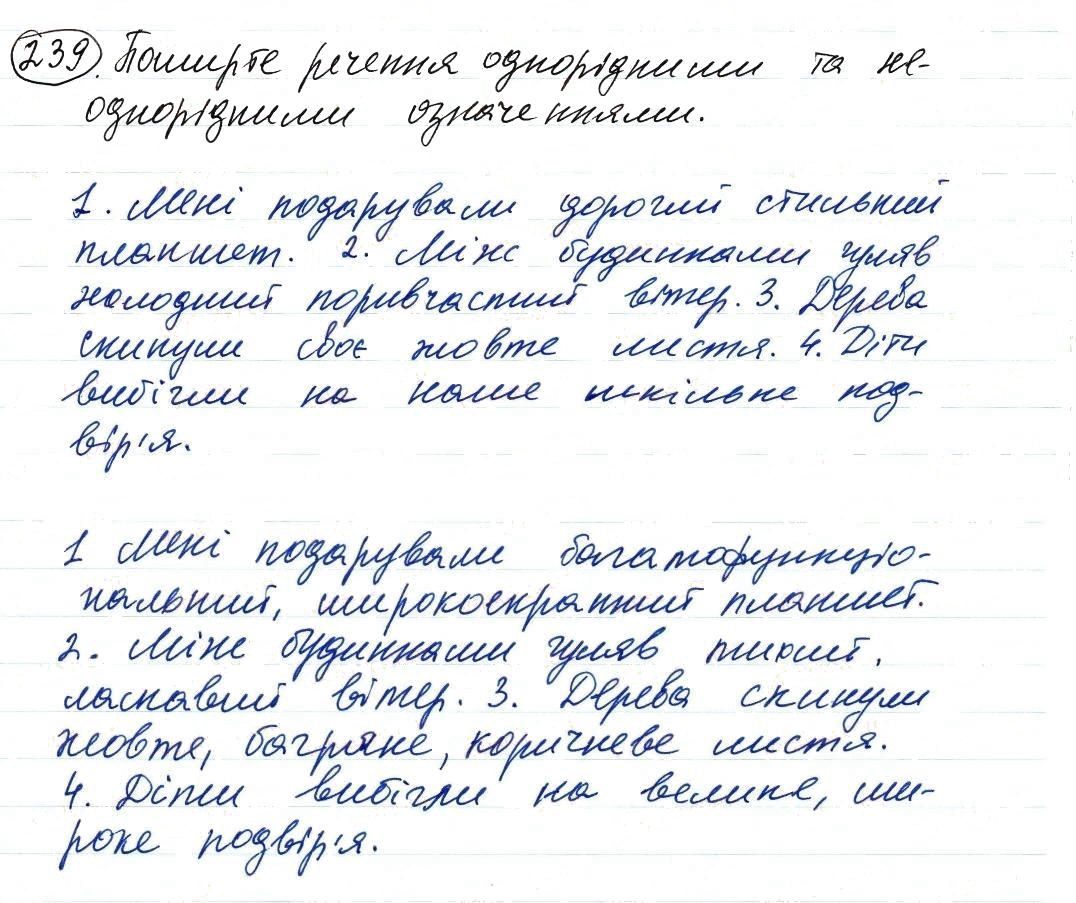 239. Поширте речення однорідними та не-
однорідними означеннями.
1. Мені подарували дорогий стильний
планшет. 2. Між будинками гуляв
холодний поривчастий вітер. 3. Дерева
скинули своє жовте листя. 4. Діти
вибігли на наше шкільне под-
вір'я.
1 Мені подарували багатофункціо-
нальний, широкоекранний планшет.
2. Між будинками гуляв тихий,
ласкавий вітер. 3. Дерева скинули
жовте, багряне, коричневе листя.
4. Діти вибігли на велике, ши-
роке подвір'я.